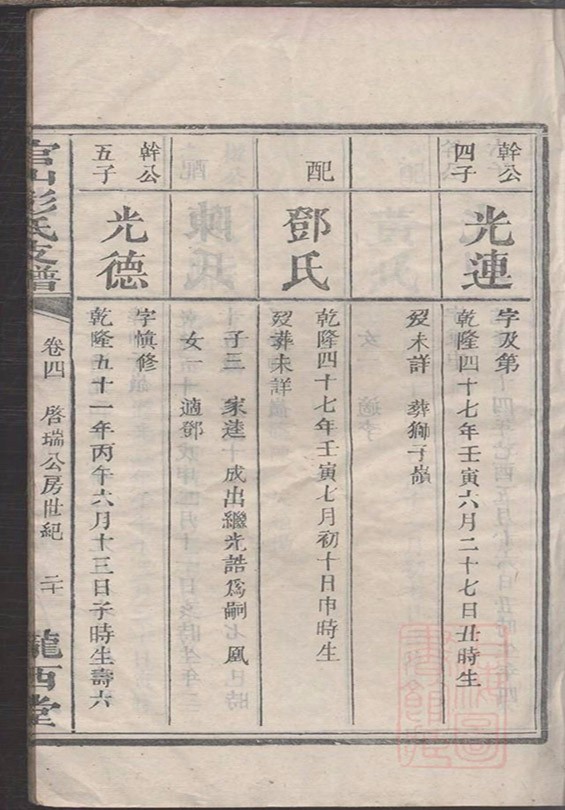 幹公
四子
光連
字及第
乾隆四十七年壬寅六月二十七日丑時生
歿未詳 葬獅子嶺
配
鄧氏
乾隆四十七年壬寅七月初十日申時生
歿葬未詳
子三 家達 成出繼光誥為嗣 鳳
女一 適鄧
幹公
五子
光德
字慎修
乾隆五十一年丙午六月十三日子時生壽六
官山彭氏支譜
卷四
啓瑞公房世紀
二十
隴西堂